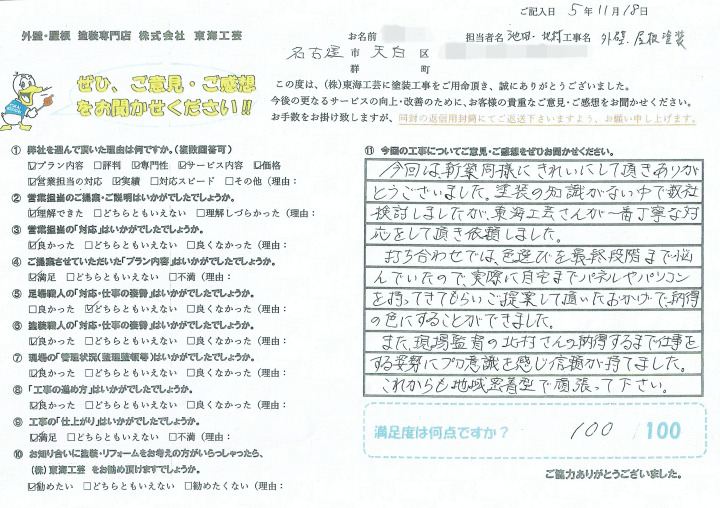 ご記入日 5年11月18日
外壁・屋根 塗装専門店 株式会社 東海工芸
お名前
担当者名 池田・北村 工事名 外壁、屋根塗装
名古屋市 天白区
群 町
ぜひ、ご意見・ご感想
をお聞かせください!!
この度は、(株)東海工芸に塗装工事をご用命頂き、誠にありがとうございました。
今後の更なるサービスの向上・改善のために、お客様の貴重なご意見・ご感想をお聞かせください。
お手数をお掛け致しますが、同封の返信用封筒にてご返送下さいますよう、お願い申し上げます。
① 弊社を選んで頂いた理由は何ですか。(複数回答可)
☑プラン内容 □評判 ☑専門性 ☑サービス内容 ☑価格
☑営業担当の対応 ☑実績 □対応スピード □その他(理由:
② 営業担当のご提案・ご説明はいかがでしたでしょうか。
☑理解できた □どちらともいえない □理解しづらかった(理由:
③ 営業担当の「対応」はいかがでしたでしょうか。
☑良かった □どちらともいえない □良くなかった(理由:
④ ご提案させていただいた「プラン内容」はいかがでしたでしょうか。
☑満足 □どちらともいえない □不満(理由:
⑤ 足場職人の「対応・仕事の姿勢」はいかがでしたでしょうか。
□良かった ☑どちらともいえない □良くなかった(理由:
⑥ 塗装職人の「対応・仕事の姿勢」はいかがでしたでしょうか。
☑良かった □どちらともいえない □良くなかった(理由:
⑦ 現場の「管理状況(整理整頓等)」はいかがでしたでしょうか。
☑良かった □どちらともいえない □良くなかった(理由:
⑧ 「工事の進め方」はいかがでしたでしょうか。
☑良かった □どちらともいえない □良くなかった(理由:
⑨ 工事の「仕上がり」はいかがでしたでしょうか。
☑満足 □どちらともいえない □不満(理由:
⑩ お知り合いに塗装・リフォームをお考えの方がいらっしゃったら、
(株)東海工芸 をお勧め頂けますでしょうか。
☑勧めたい □どちらともいえない □勧めたくない(理由:
⑪ 今回の工事についてご意見・ご感想をぜひお聞かせください。
今回は新築同様にきれいにして頂きありが
とうございました。塗装の知識がない中で数社
検討しましたが、東海工芸さんが一番丁寧な対
応をして頂き依頼しました。
打ち合わせでは、色選びを最終段階まで悩
んでいたので、実際に自宅までパネルやパソコン
を持ってきてもらいご提案して頂いたおかげで、納得
の色にすることができました。
また、現場監督の北村さんの納得するまで仕事を
する姿勢にプロ意識を感じ信頼が持てました。
これからも地域密着型で頑張って下さい。
満足度は何点ですか? 100/100
ご協力ありがとうございました。